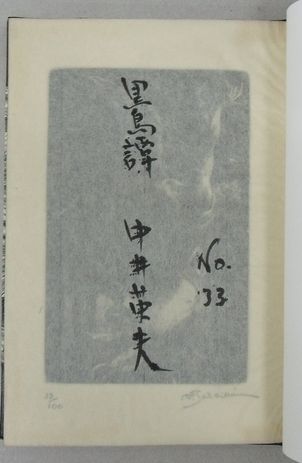 黒鳥譚
中井英夫
No.
33
33/100